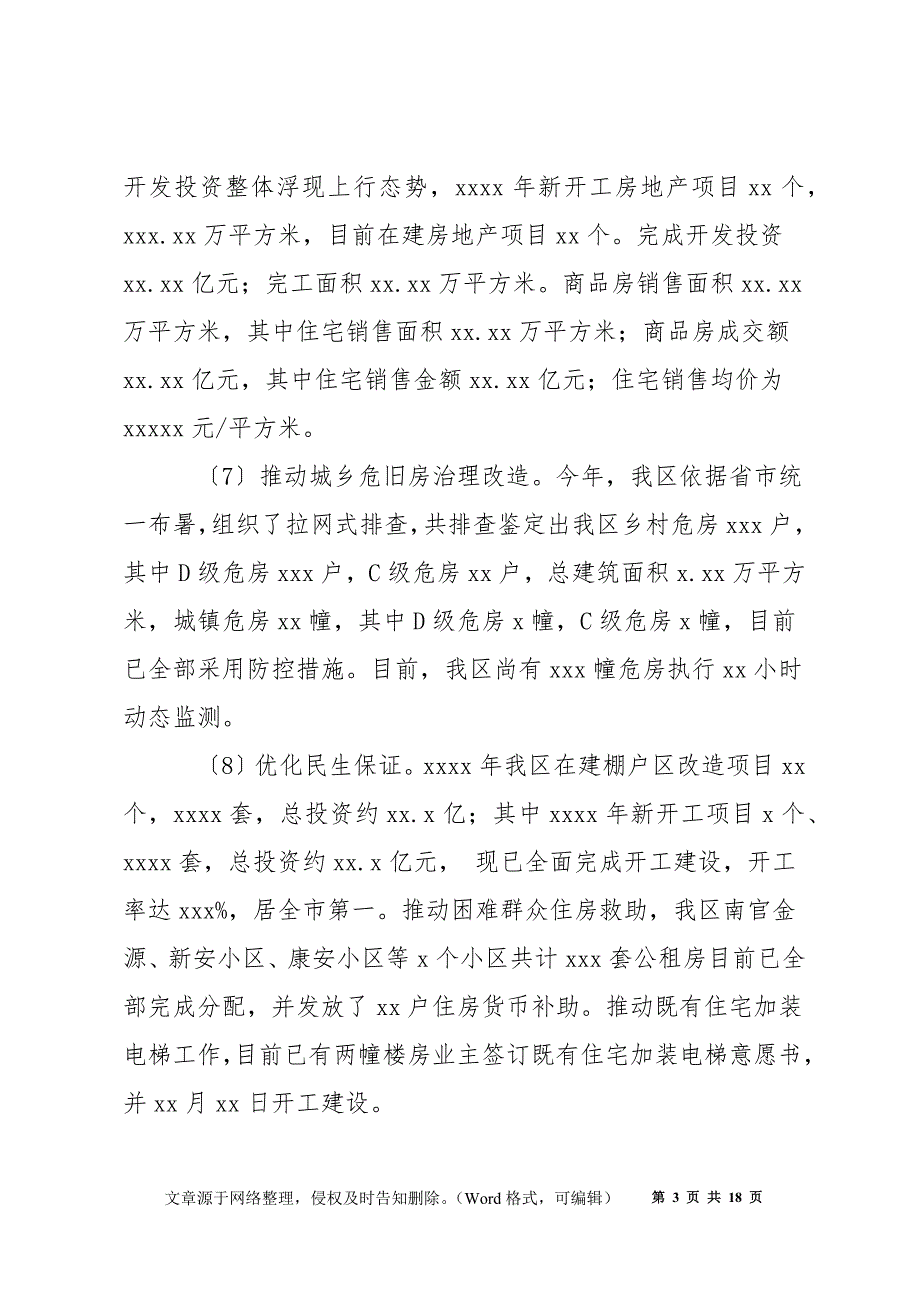 开发投资整体浮现上行态势，xxxx 年新开工房地产项目 xx 个，
xxx.xx 万平方米，目前在建房地产项目 xx 个。完成开发投资
xx.xx 亿元；完工面积 xx.xx 万平方米。商品房销售面积 xx.xx
万平方米，其中住宅销售面积 xx.xx 万平方米；商品房成交额
xx.xx 亿元，其中住宅销售金额 xx.xx 亿元；住宅销售均价为
xxxxx 元/平方米。
〔7〕推动城乡危旧房治理改造。今年，我区依据省市统
一布署，组织了拉网式排查，共排查鉴定出我区乡村危房 xxx 户，
其中 D 级危房 xxx 户，C 级危房 xx 户，总建筑面积 x.xx 万平方
米，城镇危房 xx 幢，其中 D 级危房 x 幢，C 级危房 x 幢，目前
已全部采用防控措施。目前，我区尚有 xxx 幢危房执行 xx 小时
动态监测。
〔8〕优化民生保证。xxxx 年我区在建棚户区改造项目 xx
个，xxxx 套，总投资约 xx.x 亿；其中 xxxx 年新开工项目 x 个、
xxxx 套，总投资约 xx.x 亿元， 现已全面完成开工建设，开工
率达 xxx%，居全市第一。推动困难群众住房救助，我区南官金
源、新安小区、康安小区等 x 个小区共计 xxx 套公租房目前已全
部完成分配，并发放了 xx 户住房货币补助。推动既有住宅加装
电梯工作，目前已有两幢楼房业主签订既有住宅加装电梯意愿书，
并 xx 月 xx 日开工建设。
文章源于网络整理，侵权及时告知删除。（Word 格式，可编辑） 第 3 页 共 18 页